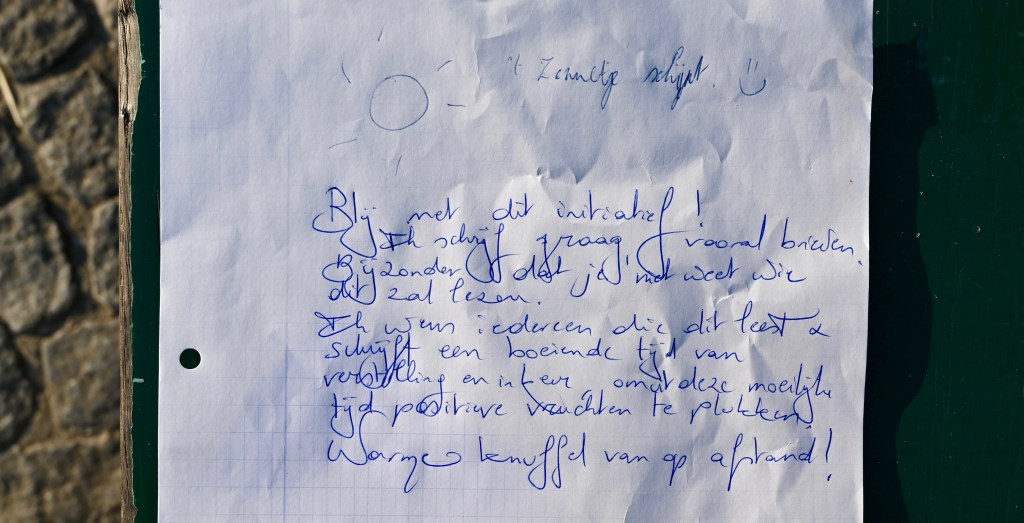 't Zonnetje schijnt.
Blij met dit initiatief!
Ik schrijf graag, vooral brieven.
Bijzonder dat je niet weet wie
dit zal lezen.
Ik wens iedereen die dit leest &
schrijft een boeiende tijd van
verstilling en inkeer om uit deze moeilijke
tijd positieve vruchten te plukken.
Warme knuffel van op afstand!